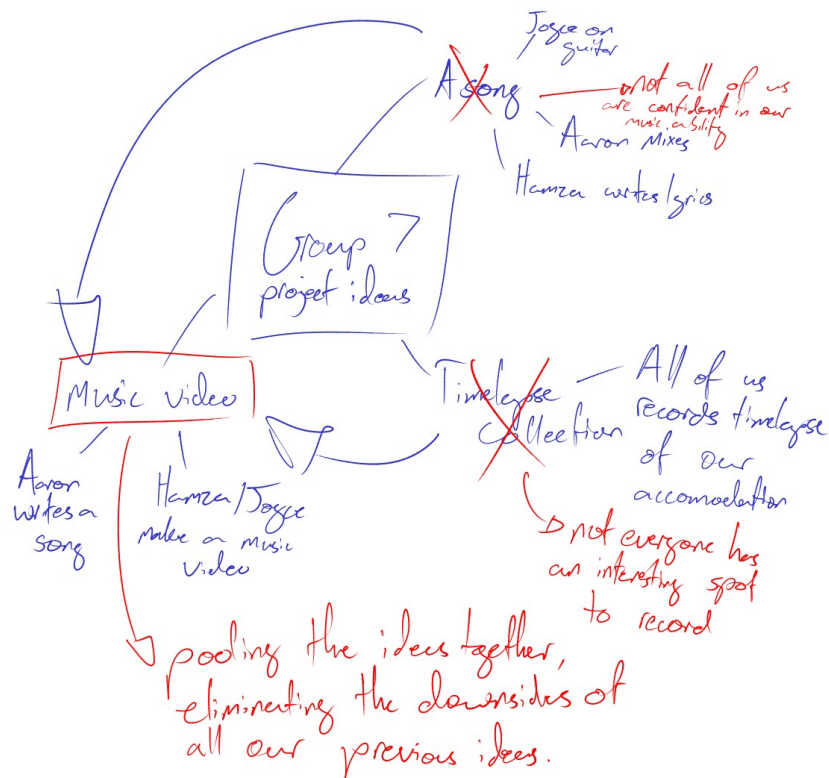 Joyce on
guitar
A song
not all of us
are confident in our
music ability
Aaron Mixes
Hamza writes lyrics
Group 7
project ideas
Music video
Aaron
writes a
song
Hamza/Joyce
make a music
video
Timelapse
Collection
All of us
records timelapse
of our
accomodation
not everyone has
an interesting spot
to record
pooling the ideas together,
eliminating the downsides of
all our previous ideas.